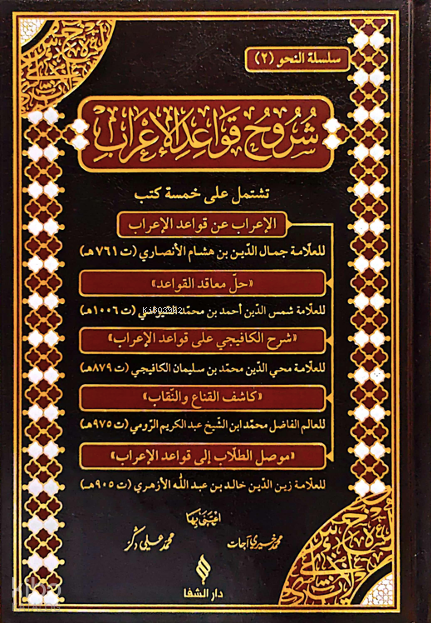 سلسلة النحو (٢)
شُرُوحُ قَوَاعِدِ الإِعْرَابِ
تشتمل على خمسة كتب
الإعراب عن قواعد الإعراب
للعلّامة جمال الدّين بن هشام الأنصاري (ت ٧٦١هـ)
«حلّ معاقد القواعد»
للعلّامة شمس الدّين أحمد بن محمّد (ت ١٠٠٦هـ)
«شرح الكافيجي على قواعد الإعراب»
للعلّامة محي الدّين محمّد بن سليمان الكافيجي (ت ٨٧٩هـ)
«كاشف القناع والنّقاب»
للعالم الفاضل محمّد ابن الشّيخ عبد الكريم الرّومي (ت ٩٧٥هـ)
«موصل الطلّاب إلى قواعد الإعراب»
للعلّامة زين الدّين خالد بن عبد الله الأزهري (ت ٩٠٥هـ)
اعتنى بها
محمد خيري آجات محمد علي دكز
دار الشفا
kitap